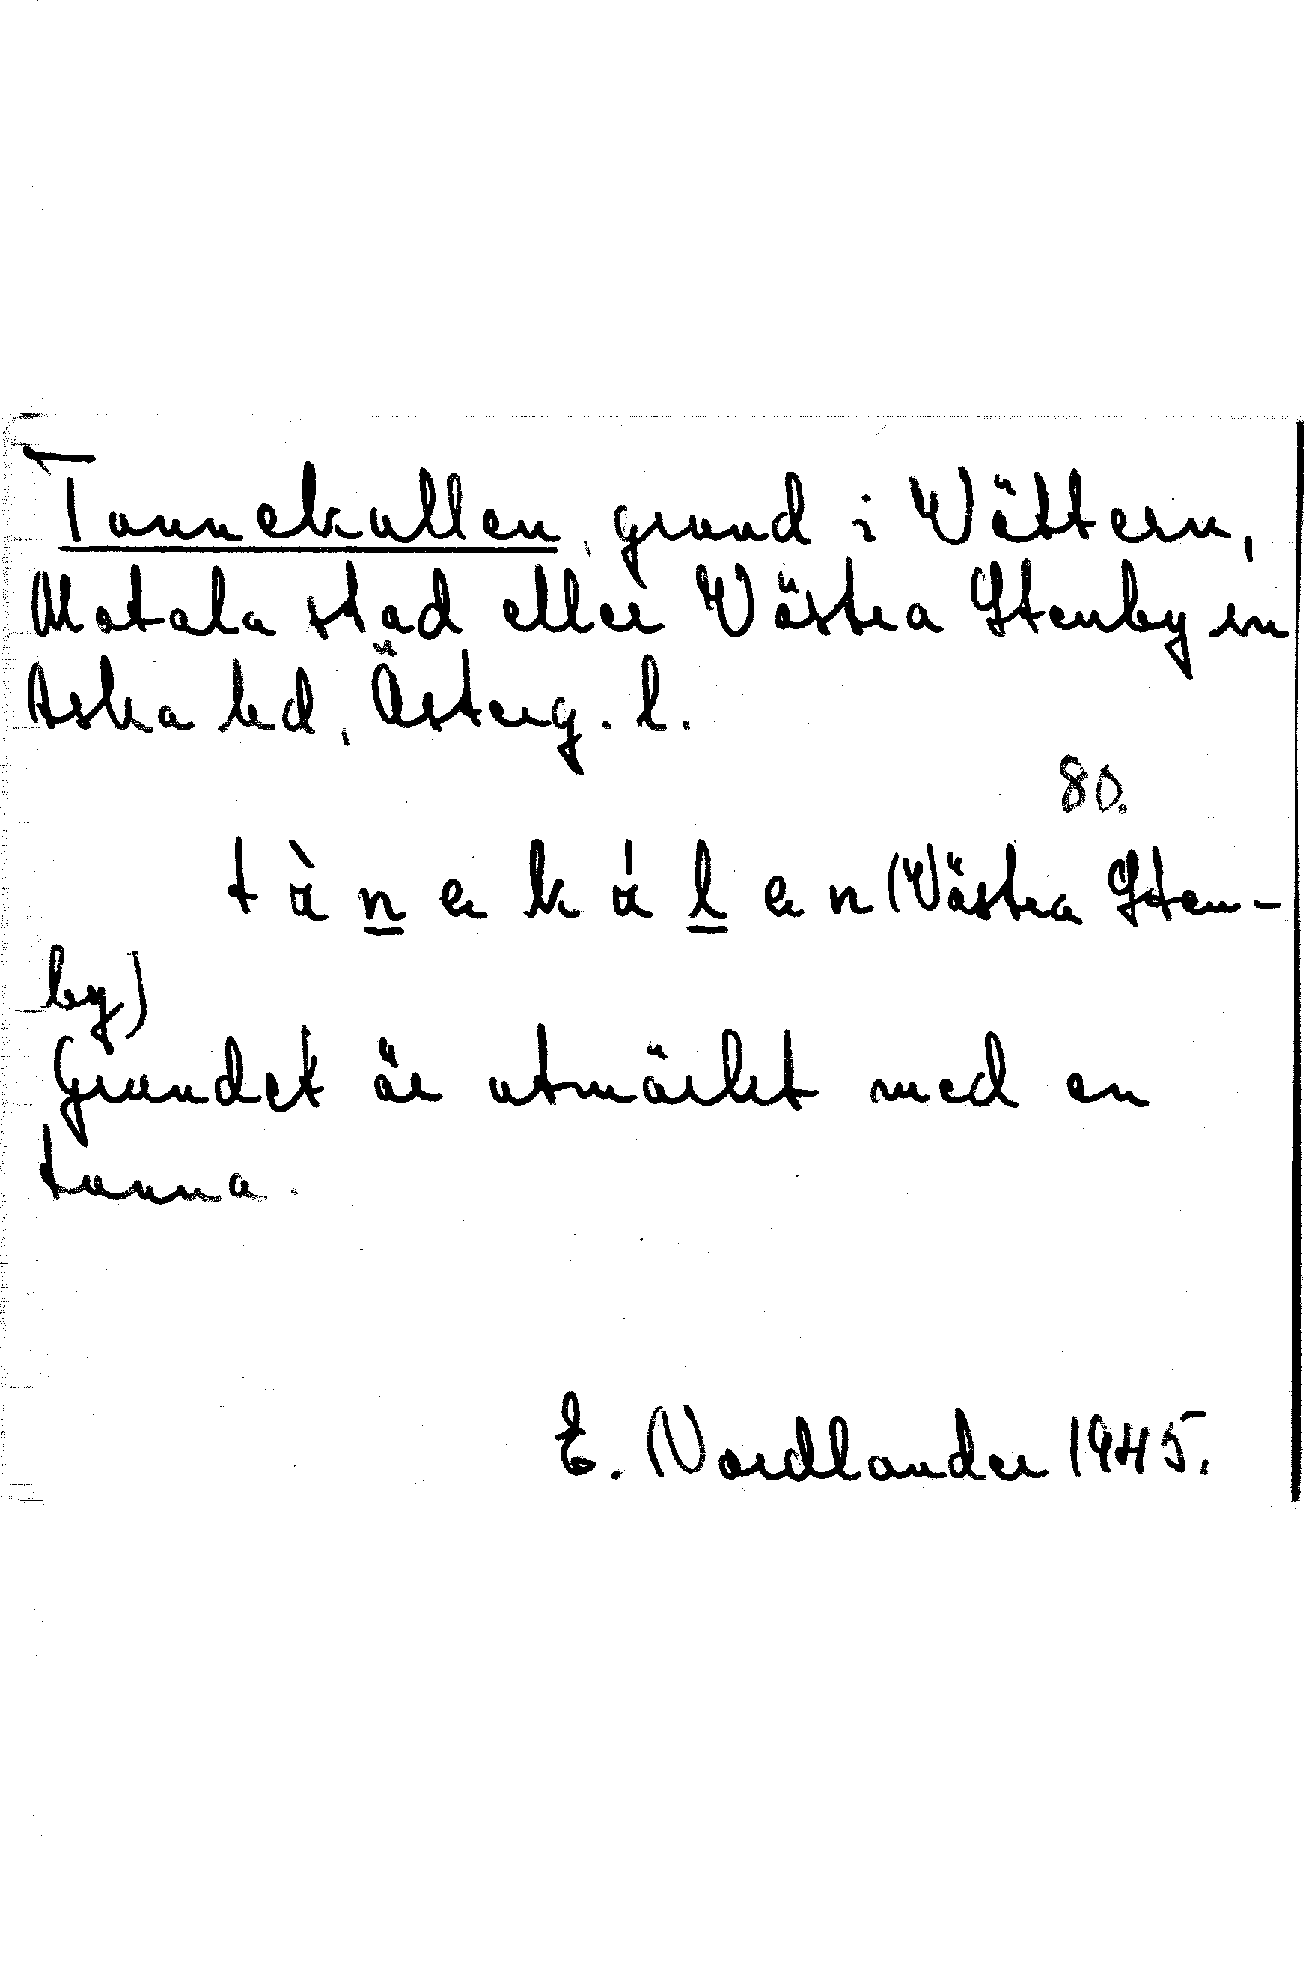 Tunnekullen, grund i Vättern,
Motala stad eller Västra Stenby sn
Aska hd, Österg. l.
80.
t ù n e k ú l e n (Västra Sten-
by)
Grundet är utmärkt med en
tunna.
E. Nordlander 1945.